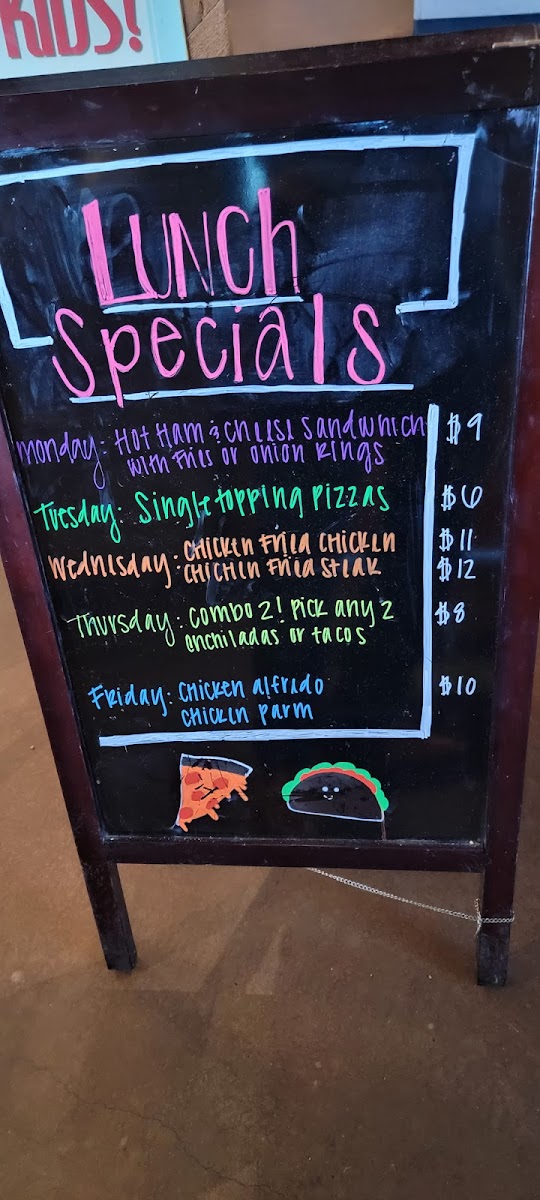 KIDS!
Lunch
Specials
Monday: Hot Ham & Cheese Sandwhich $9
with Fries or onion Rings
Tuesday: Single topping Pizzas $6
Wednesday: Chicken Fried Chicken $11
Chichen Fried Steak $12
Thursday: Combo 2! Pick any 2 $8
enchiladas or tacos
Friday: Chicken alfredo $10
Chicken Parm